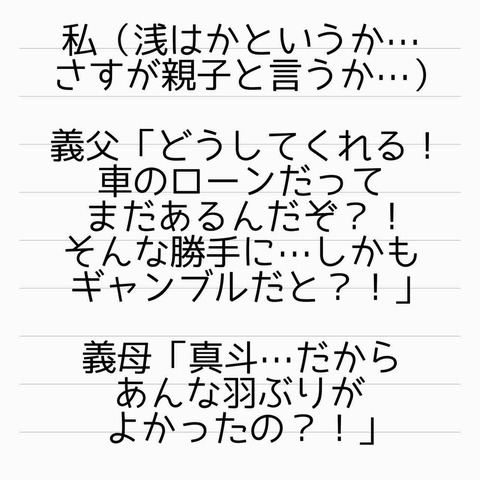 私（浅はかというか…
さすが親子と言うか…）
義父「どうしてくれる！
車のローンだって
まだあるんだぞ？！
そんな勝手に…しかも
ギャンブルだと？！」
義母「真斗…だから
あんな羽ぶりが
よかったの？！」